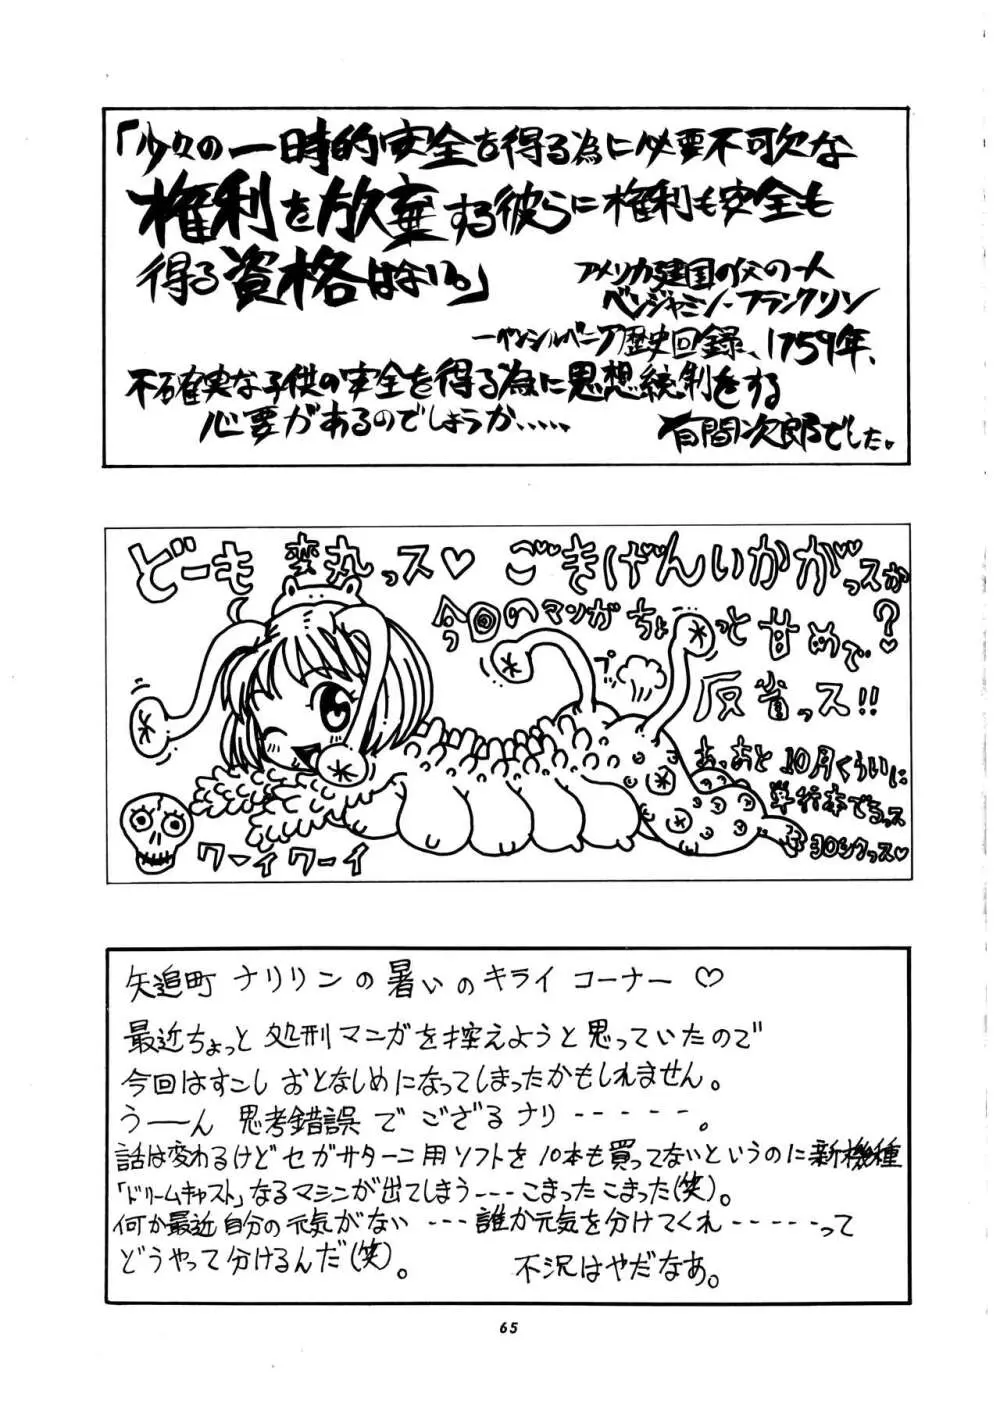 「少々の一時的安全を得る為に必要不可欠な
権利を放棄する彼らに権利も安全も
得る資格はない。」
アメリカ建国の父の一人
ベンジャミン・フランクリン
―ペンシルベニア歴史回録、1759年、
不確実な子供の安全を得る為に思想統制をする
必要があるのでしょうか、、、、、
有間次郎でした。
どーも 変丸っス♡ ごきげんいかがっスか?
今回のマンガ ちょっと甘めで
プッ
反省っス!!
あっあと 10月くらいに
単行本でるっス
ヨロシクっス♡
ワーィワーィ
矢追町 ナリリンの暑いのキライ コーナー♡
最近ちょっと 処刑マンガを控えようと思っていたので
今回はすこし おとなしめになってしまったかもしれません。
う――ん 思考錯誤 で ござるナリ ------。
話は変わるけど セガサターン用ソフトを 10本も買ってないというのに新機種
「ドリームキャスト」なるマシンが出てしまう---こまったこまった(笑)。
何か最近 自分の元気がない --- 誰か元気を分けてくれ -----って
どうやって分けるんだ(笑)。 不況はやだなあ。
65